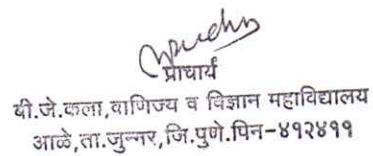 प्राचार्य
बी.जे.कला,वाणिज्य व विज्ञान महाविद्यालय
आळे,ता.जुन्नर,जि.पुणे.पिन-४१२४११